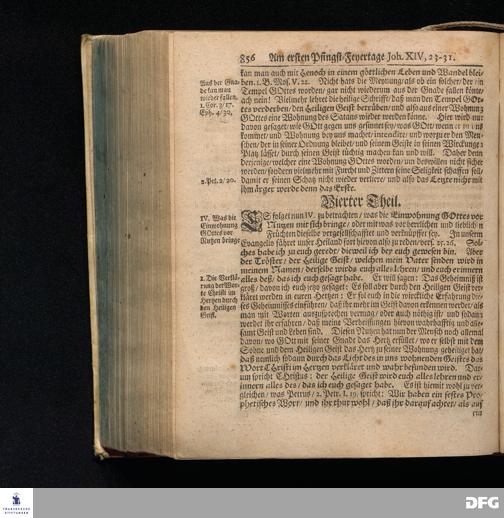 856 Am ersten Pfingst-Feyertage Joh. XIV, 23-31.
kan man auch mit Henoch in einem göttlichen Leben und Wandel blei-
Aus der Gna-
de kan man
wieder fallen.
1. Cor. 3/17.
Eph. 4/30.
ben. 1. B. Mos. V. 22. Nicht hats die Meynung/ als ob ein solcher/ der ein
Tempel GOttes worden/ gar nicht wiederum aus der Gnade fallen könte/
ach nein! Vielmehr lehret die heilige Schrifft/ daß man den Tempel GOt-
tes verderben/ den Heiligen Geist betrüben/ und also aus einer Wohnung
GOttes eine Wohnung des Satans wieder werden könne. Hier wird nur
davon gesaget/ wie GOtt gegen uns gesinnet sey/ was GOtt/ wenn er zu uns
kommet/ und Wohnung bey uns machet/ intendire/ und worzu er den Men-
schen/ der in seiner Ordnung bleibet/ und seinem Geiste in seinen Wirckungen
Platz lässet/ durch seinen Geist tüchtig machen kan und will. Daher denn
derjenige/ welcher eine Wohnung GOttes worden/ um deswillen nicht sicher
werden/ sondern vielmehr mit Furcht und Zittern seine Seligkeit schaffen soll/
2. Pet. 2/20.
damit er seinen Schatz nicht wieder verliere/ und also das Letzte nicht mit
ihm ärger werde denn das Erste.
Vierter Theil.
IV. Was die
Einwohnung
GOttes vor
Nutzen bringe
ES folget nun IV. zu betrachten/ was die Einwohnung GOttes vor
Nutzen mit sich bringe/ oder mit was vor herrlichen und lieblichen
Früchten dieselbe vergesellschafftet und verknüpffet sey. In unserm
Evangelio fähret unser Heiland fort hievon also zu reden/ vers. 25. 26. Sol-
ches habe ich zu euch geredt/ dieweil ich bey euch gewesen bin. Aber
der Tröster/ der Heilige Geist/ welchen mein Vater senden wird in
meinem Namen/ derselbe wirds euch alles lehren/ und euch erinnern
1. Die Verklä-
rung der Wor-
te Christi im
Hertzen durch
den Heiligen
Geist.
alles deß/ das ich euch gesagt habe. Er will sagen: Das Geheimniß ist
groß/ davon ich euch jetzo gesaget: Es soll aber durch den Heiligen Geist ver-
kläret werden in euren Hertzen: Er soll euch in die wirckliche Erfahrung die-
ses Geheimnisses einführen/ daß ihr mehr im Geist davon erkennen werdet/ als
man mit Worten auszusprechen vermag/ oder auch nöthig ist/ und sodann
werdet ihr erfahren/ daß meine Verheissungen hievon wahrhafftig und
samt Geist und Leben sind. Diesen Nutzen hat nun der Mensch noch allemal
davon/ wo GOtt mit seiner Gnade das Hertz erfüllet/ wo er selbst mit dem
Sohne und dem Heiligen Geist das Hertz zu seiner Wohnung geheiliget hat/
daß nemlich sodann durch das Licht des in uns wohnenden Geistes das
WOrt Christi im Hertzen verkläret und wahr befunden wird. Dar-
um spricht Christus: der Heilige Geist wird euch alles lehren und er-
innern alles des/ das ich euch gesaget habe. Es ist hiemit wohl zu ver-
gleichen/ was Petrus/ 2. Petr. I. 19. spricht: Wir haben ein festes Pro-
phetisches Wort/ und ihr thut wohl/ daß ihr darauf achtet/ als auf
ein
FRANCKESCHE
STIFTUNGEN
DFG